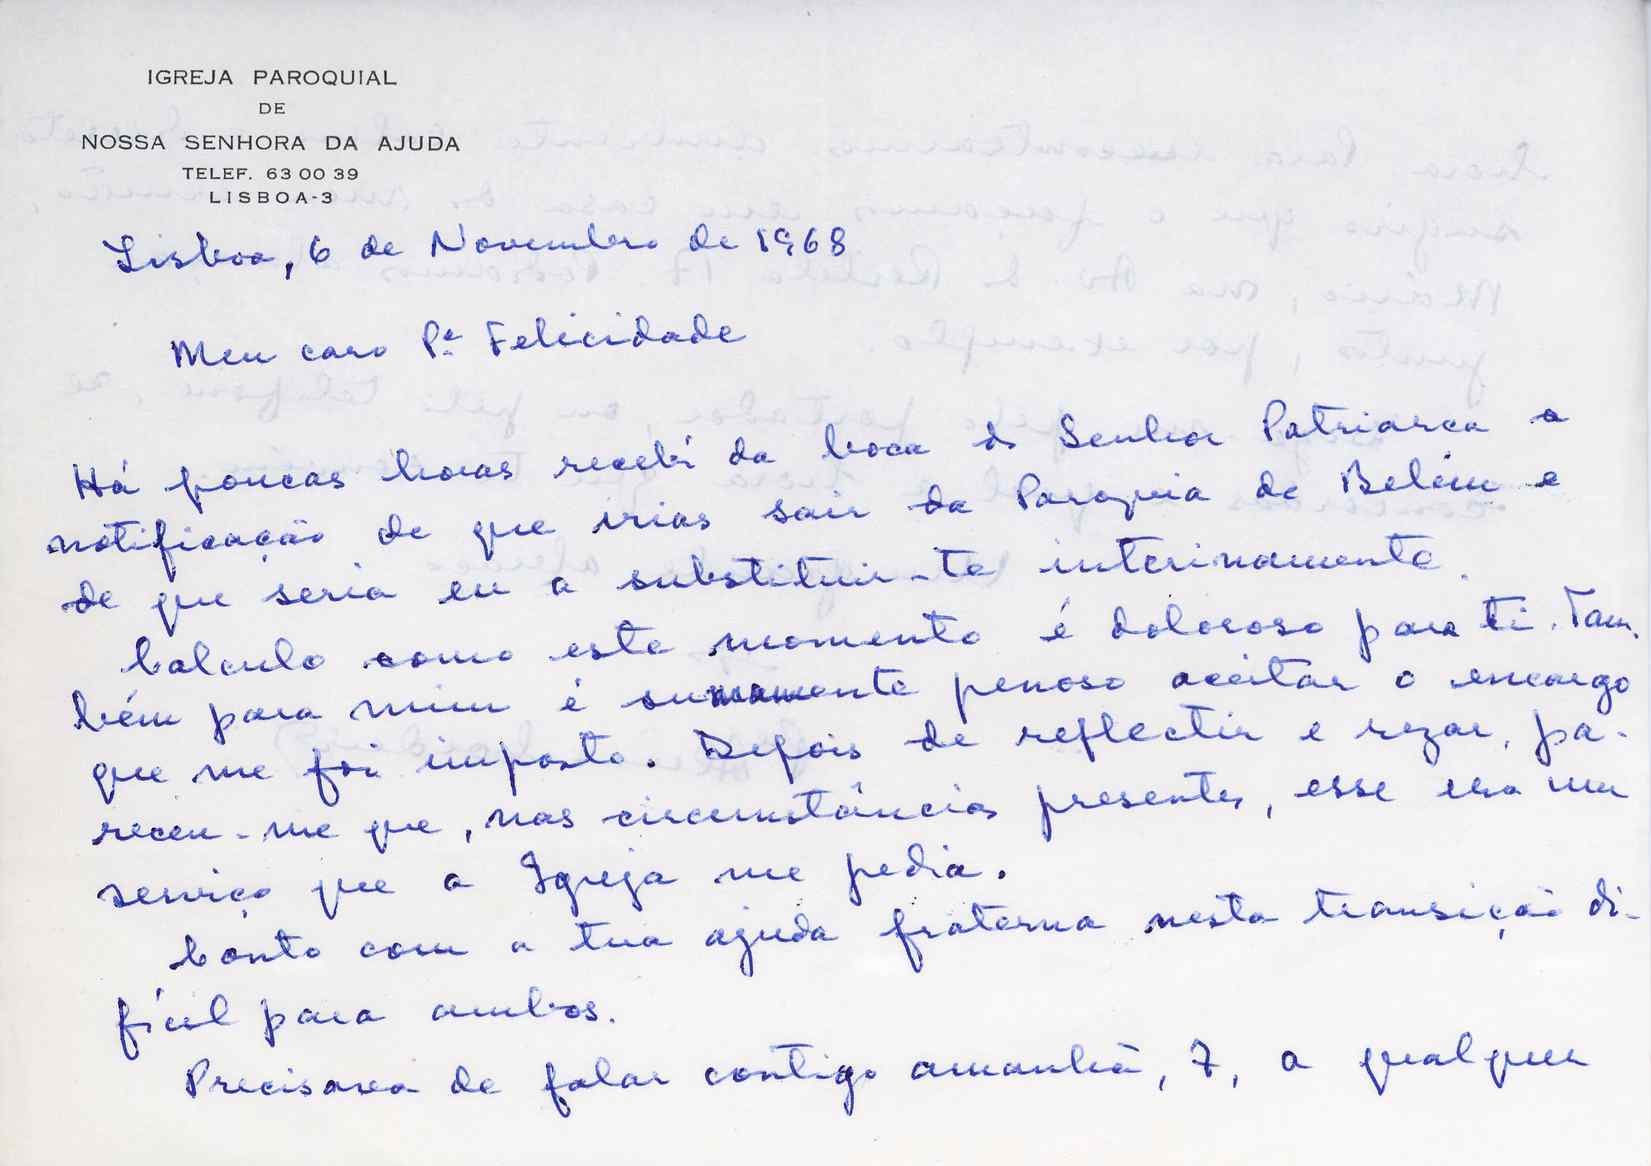 IGREJA PAROQUIAL
DE
NOSSA SENHORA DA AJUDA
TELEF. 63 00 39
LISBOA-3
Lisboa, 6 de Novembro de 1968
Meu caro Pe. Felicidade
Há poucas horas recebi da boca do Senhor Patriarca a
notificação de que irias sair da Paroquia de Belém e
de que seria eu a substituir-te interinamente.
Calculo como este momento é doloroso para ti. Tam-
bém para mim é sumamente penoso aceitar o encargo
que me foi imposto. Depois de reflectir e rezar, pa-
receu-me que, nas circunstâncias presentes, esse era um
serviço que a Igreja me pedia.
Conto com a tua ajuda fraterna nesta transição di-
fícil para ambos.
Precisava de falar contigo amanhã, 7, a qualquer